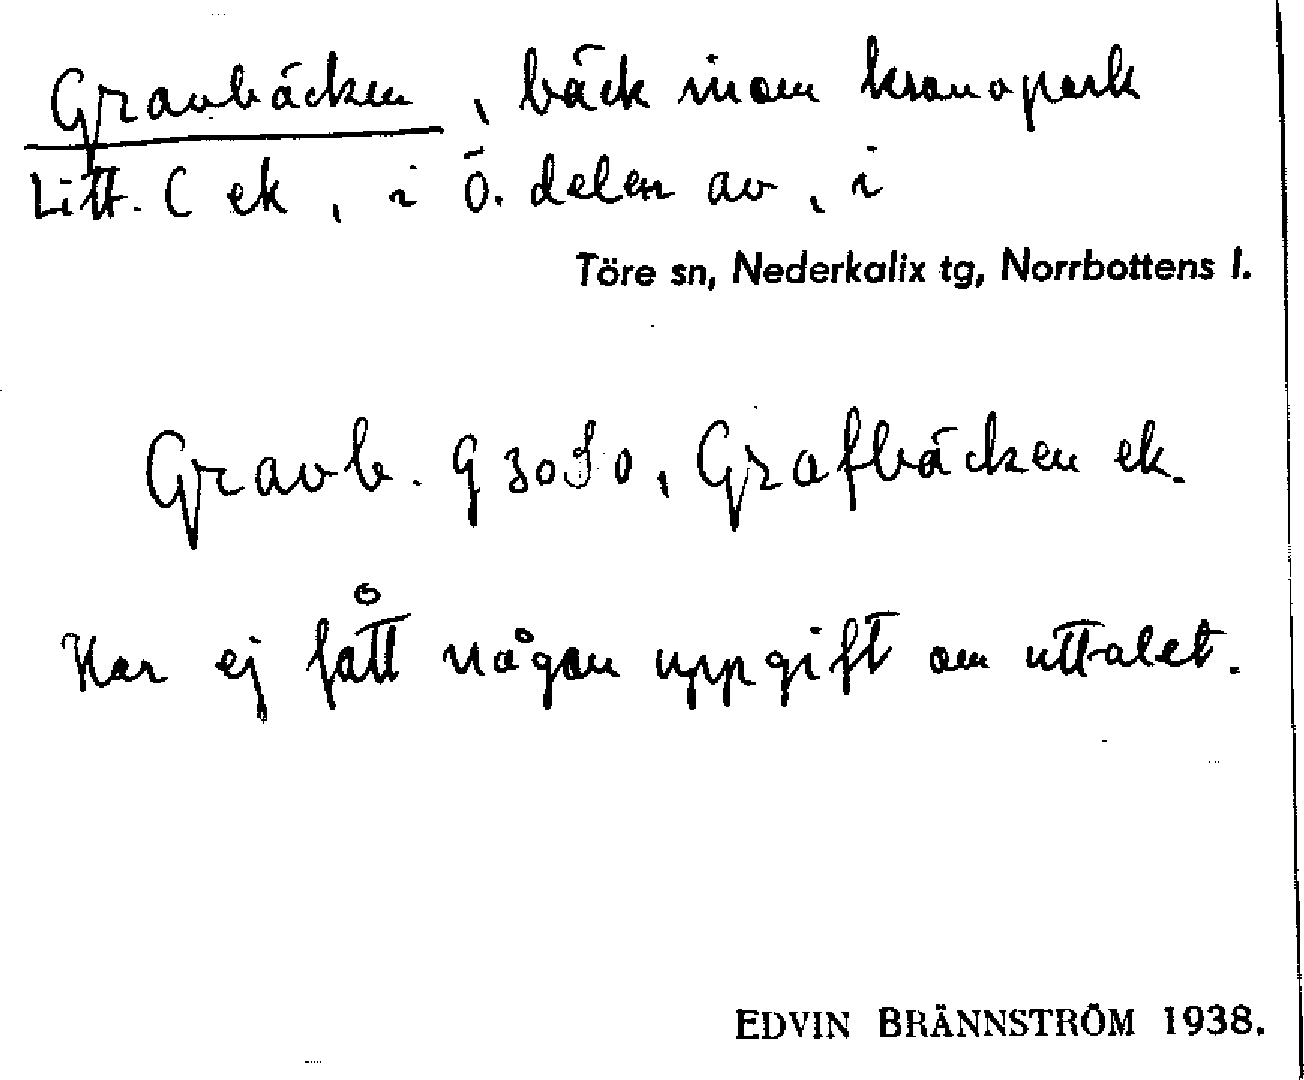 Gravbäcken, bäck inom kronopark
Litt. C ek, i ö. delen av, i
Töre sn, Nederkalix tg, Norrbottens l.
Gravb. g 3050, Grafbäcken ek.
Har ej fått någon uppgift om uttalet.
EDVIN BRÄNNSTRÖM 1938.